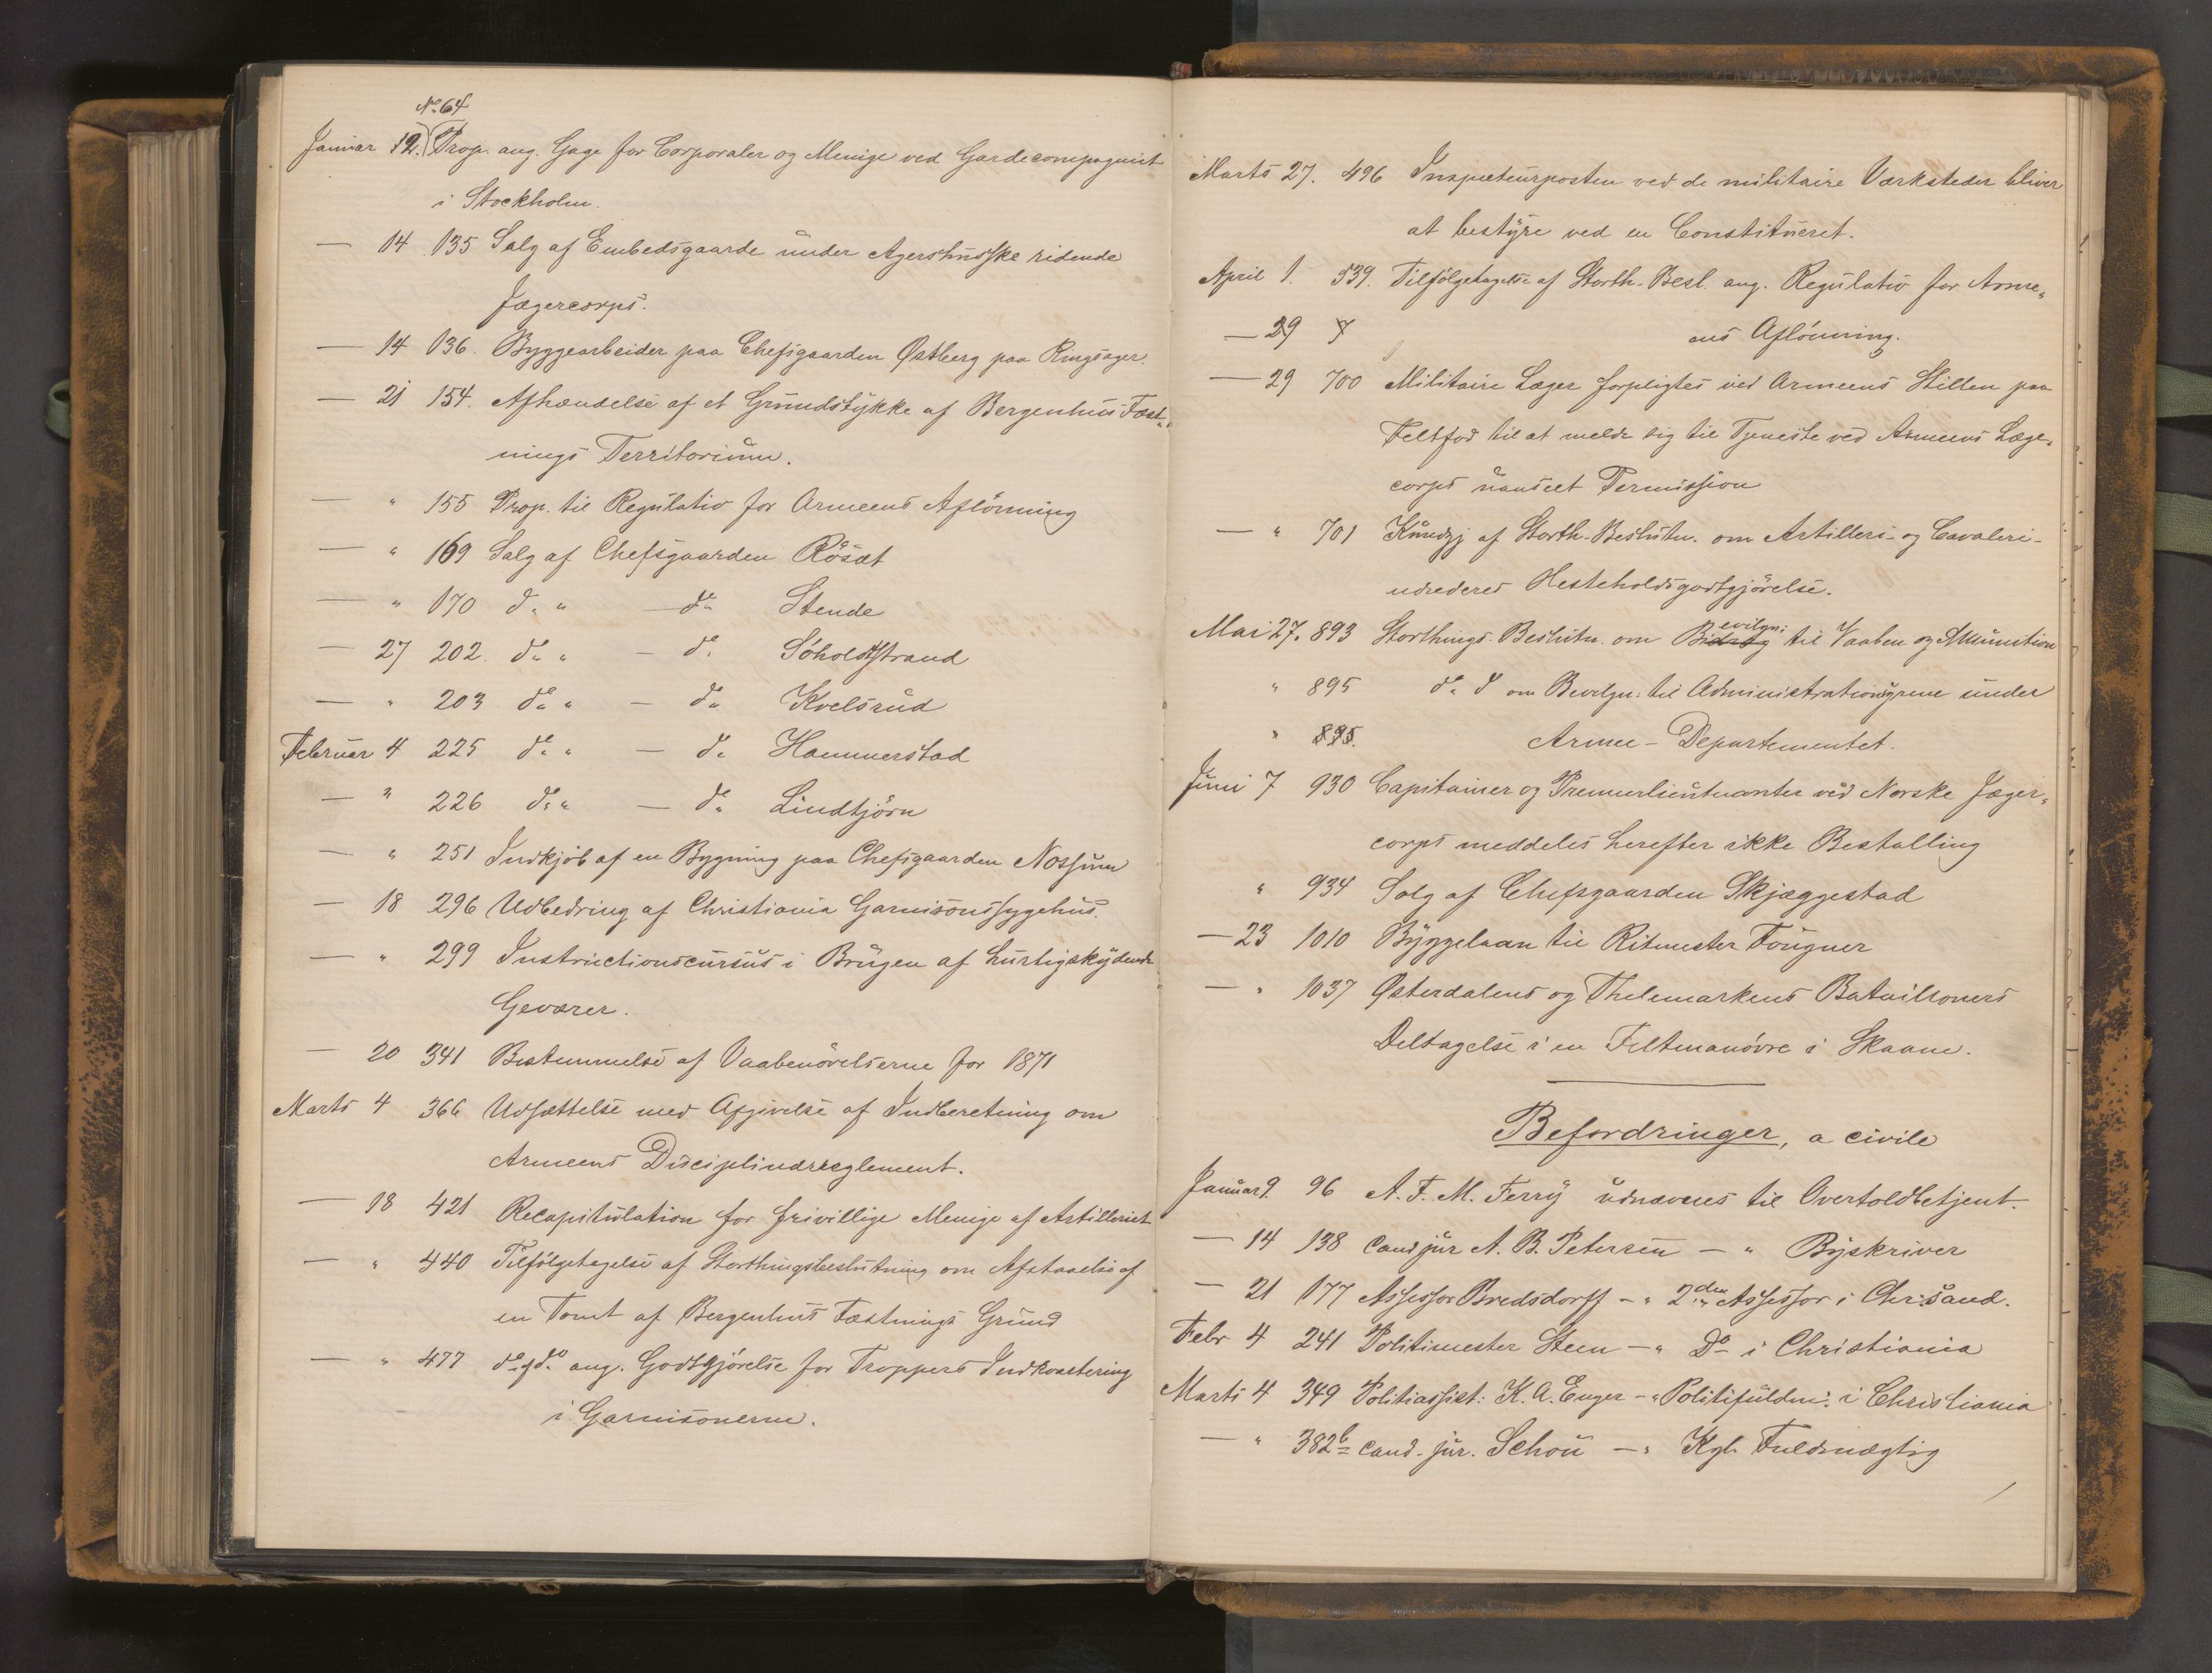 No. 64
Januar 12. Prop. ang. Gage for Corporaler og Menige ved Gardecompagniet
i Stockholm.
— 14 135 Salg af Embedsgaarde under Agershusske ridende
Jægercorps.
— 14 136. Byggearbeider paa Chefsgaarden Østberg paa Ringsager.
— 21 154. Afhændelse af et Grundstykke af Bergenhus Fæst„
nings Territorium.
— " 155 Prop. til Regulativ for Armeens Aflönning
— " 169 Salg af Chefsgaarden
— " 170 do " — do Stende
— 27 202. do " — do Söholdtstrand
— " 203 do " — do Kvelsrud
Februar 4 225 do " — do Hammerstad
— " 226 do " — do Lindtjörn
— " 251 Indkjöb af en Bygning paa Chefsgaarden Nossum
— 18 296 Udbedring af Christiania Garnisonssygehus.
— " 299 Instructionscursus i Brugen af hurtigskydende
Geværer.
— 20 341 Bestemmelse af Vaabenövelserne for 1871
Marts 4 366 Udsættelse med Afgivelse af Indberetning om
Armeens Disciplinærreglement.
— 18 421 Recapitulation for frivillige Menige af Artilleriet
— " 440 Tilfölgetagelse af Storthingsbeslutning om Afstaaelse af
en Tomt af Bergenhus Fæstnings Grund
— " 477 do do ang. Godtgjörelse for Troppers Indkvartering
i Garnisonerne.
Marts 27. 496 Inspecteurposten ved de militaire Værksteder bliver
at bestyre ved en Constitueret.
April 1. 539. Tilfölgetagelse af Storth. Besl. ang. Regulativ for Arme„
— 29 7 ens Aflönning.
— 29 700 Militaire Læger forpligtes ved Armeens Stillen paa
Feltfod til at melde sig til Tjeneste ved Armeens Læge„
corps uanseet Permission
— " 701 Kundgj af Storth. Beslutn. om Artilleri- og Cavaleri-
udrederes Hesteholdsgodtgjörelse.
Mai 27. 893 Storthings Beslutn. om Bidrag evilgn: til Vaaben og Ammunition
" 895 do do om Bevilgn: til Administrationsgrene under
" 895. Armee-Departementet.
Juni 7 930 Capitainer og Premierlieutnanter ved Norske Jæger„
corps meddeles herefter ikke Bestalling
" 934 Salg af Chefsgaarden Skjæggestad
— 23 1010 Byggelaan til Ritmester Fougner
— " 1037 Østerdalens og Thelemarkens Batailloners
Deltagelse i en Feltmanövre i Skaane.
Befordringer, a civile
Januar 9. 96 A. F. M. Ferry udnævnes til Overtoldbetjent.
— 14 138 Cand jur A. B. Petersen — " Byskriver
— 21 177 Assessor Bredsdorff — " 2den Assessor i Chr:sand.
Febr 4 241 Politimester Steen — " Do i Christiania
Marts 4 349 Politiassist: K. A. Enger — " Politifuldm: i Christiania
— " 382b cand. jur. Schou — " Kgl. Fuldmægtig